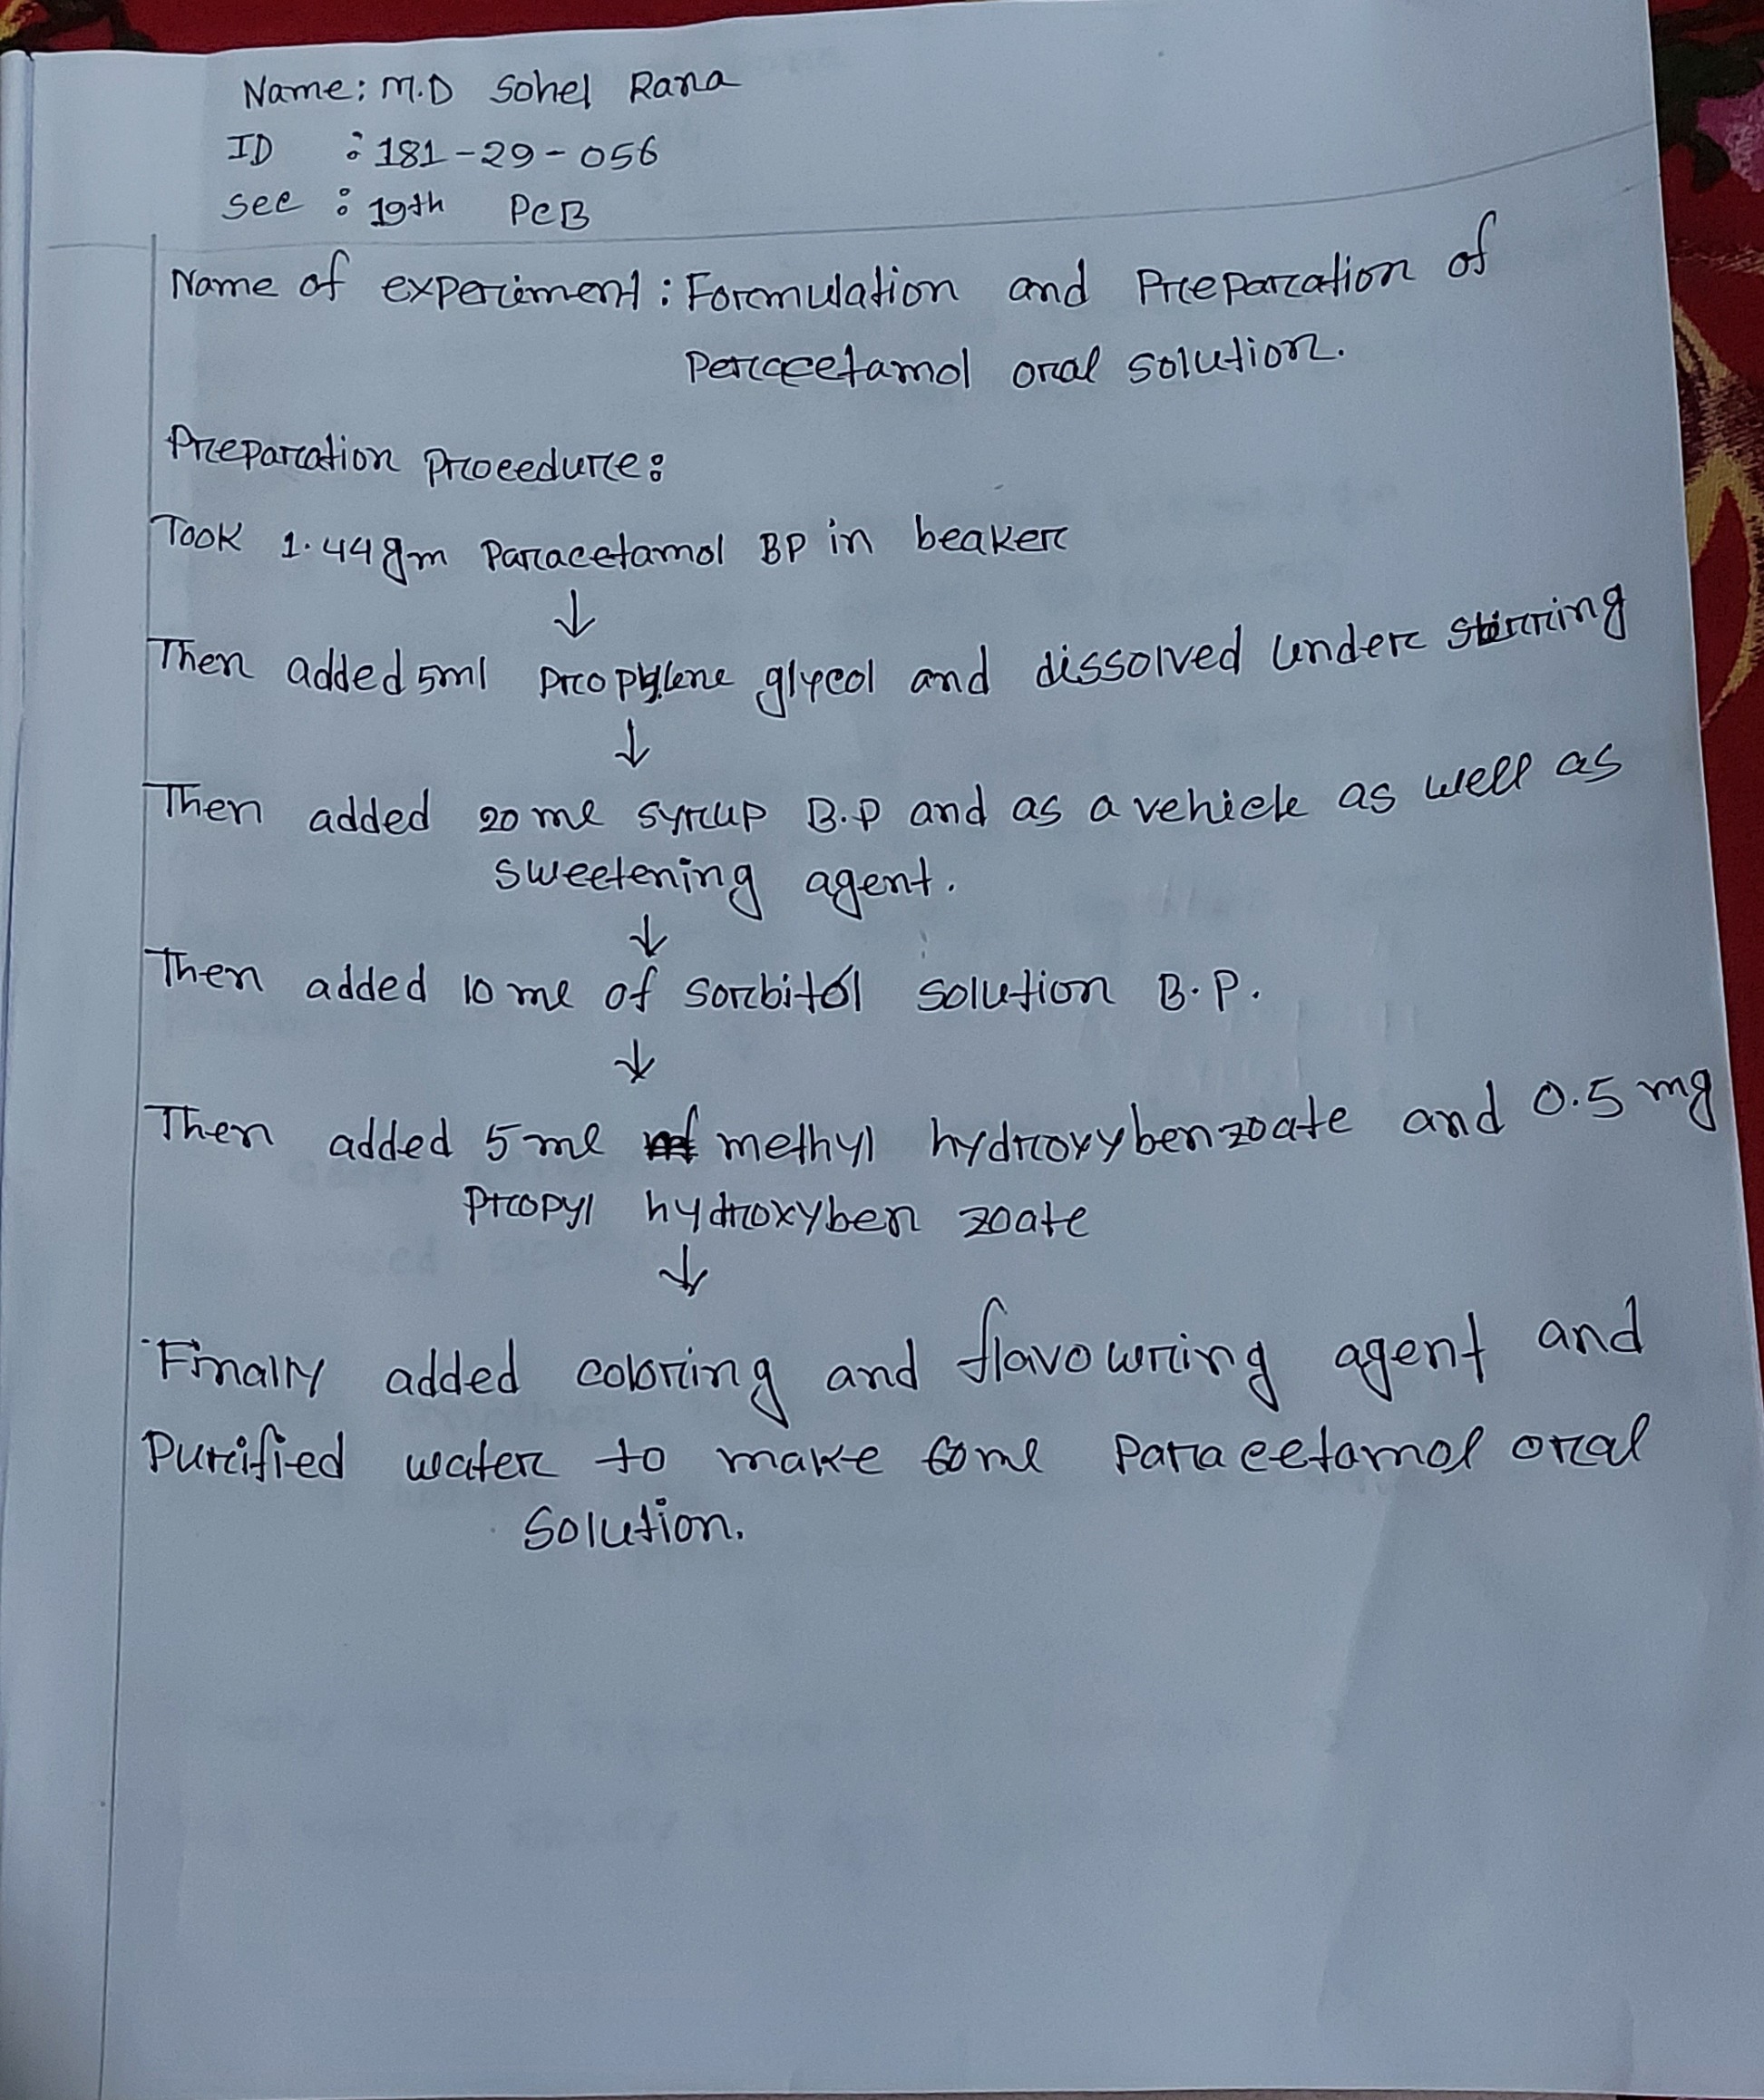 Name: M.D Sohel Rana
ID : 181-29-056
Sec : 19th PCB
Name of experiment: Formulation and Preparation of
Peracetamol oral solution.
Preparation Procedure:
Took 1.44gm Paracetamol BP in beaker
↓
Then added 5ml Propylene glycol and dissolved under stirring
↓
Then added 20 ml syrup B.P and as a vehicle as well as
sweetening agent.
↓
Then added 10 ml of sorbitol solution B.P.
↓
Then added 5 ml methyl hydroxybenzoate and 0.5 mg
Propyl hydroxyben zoate
↓
Finally added coloring and flavouring agent and
Purified water to make 60ml Paracetamol oral
Solution.